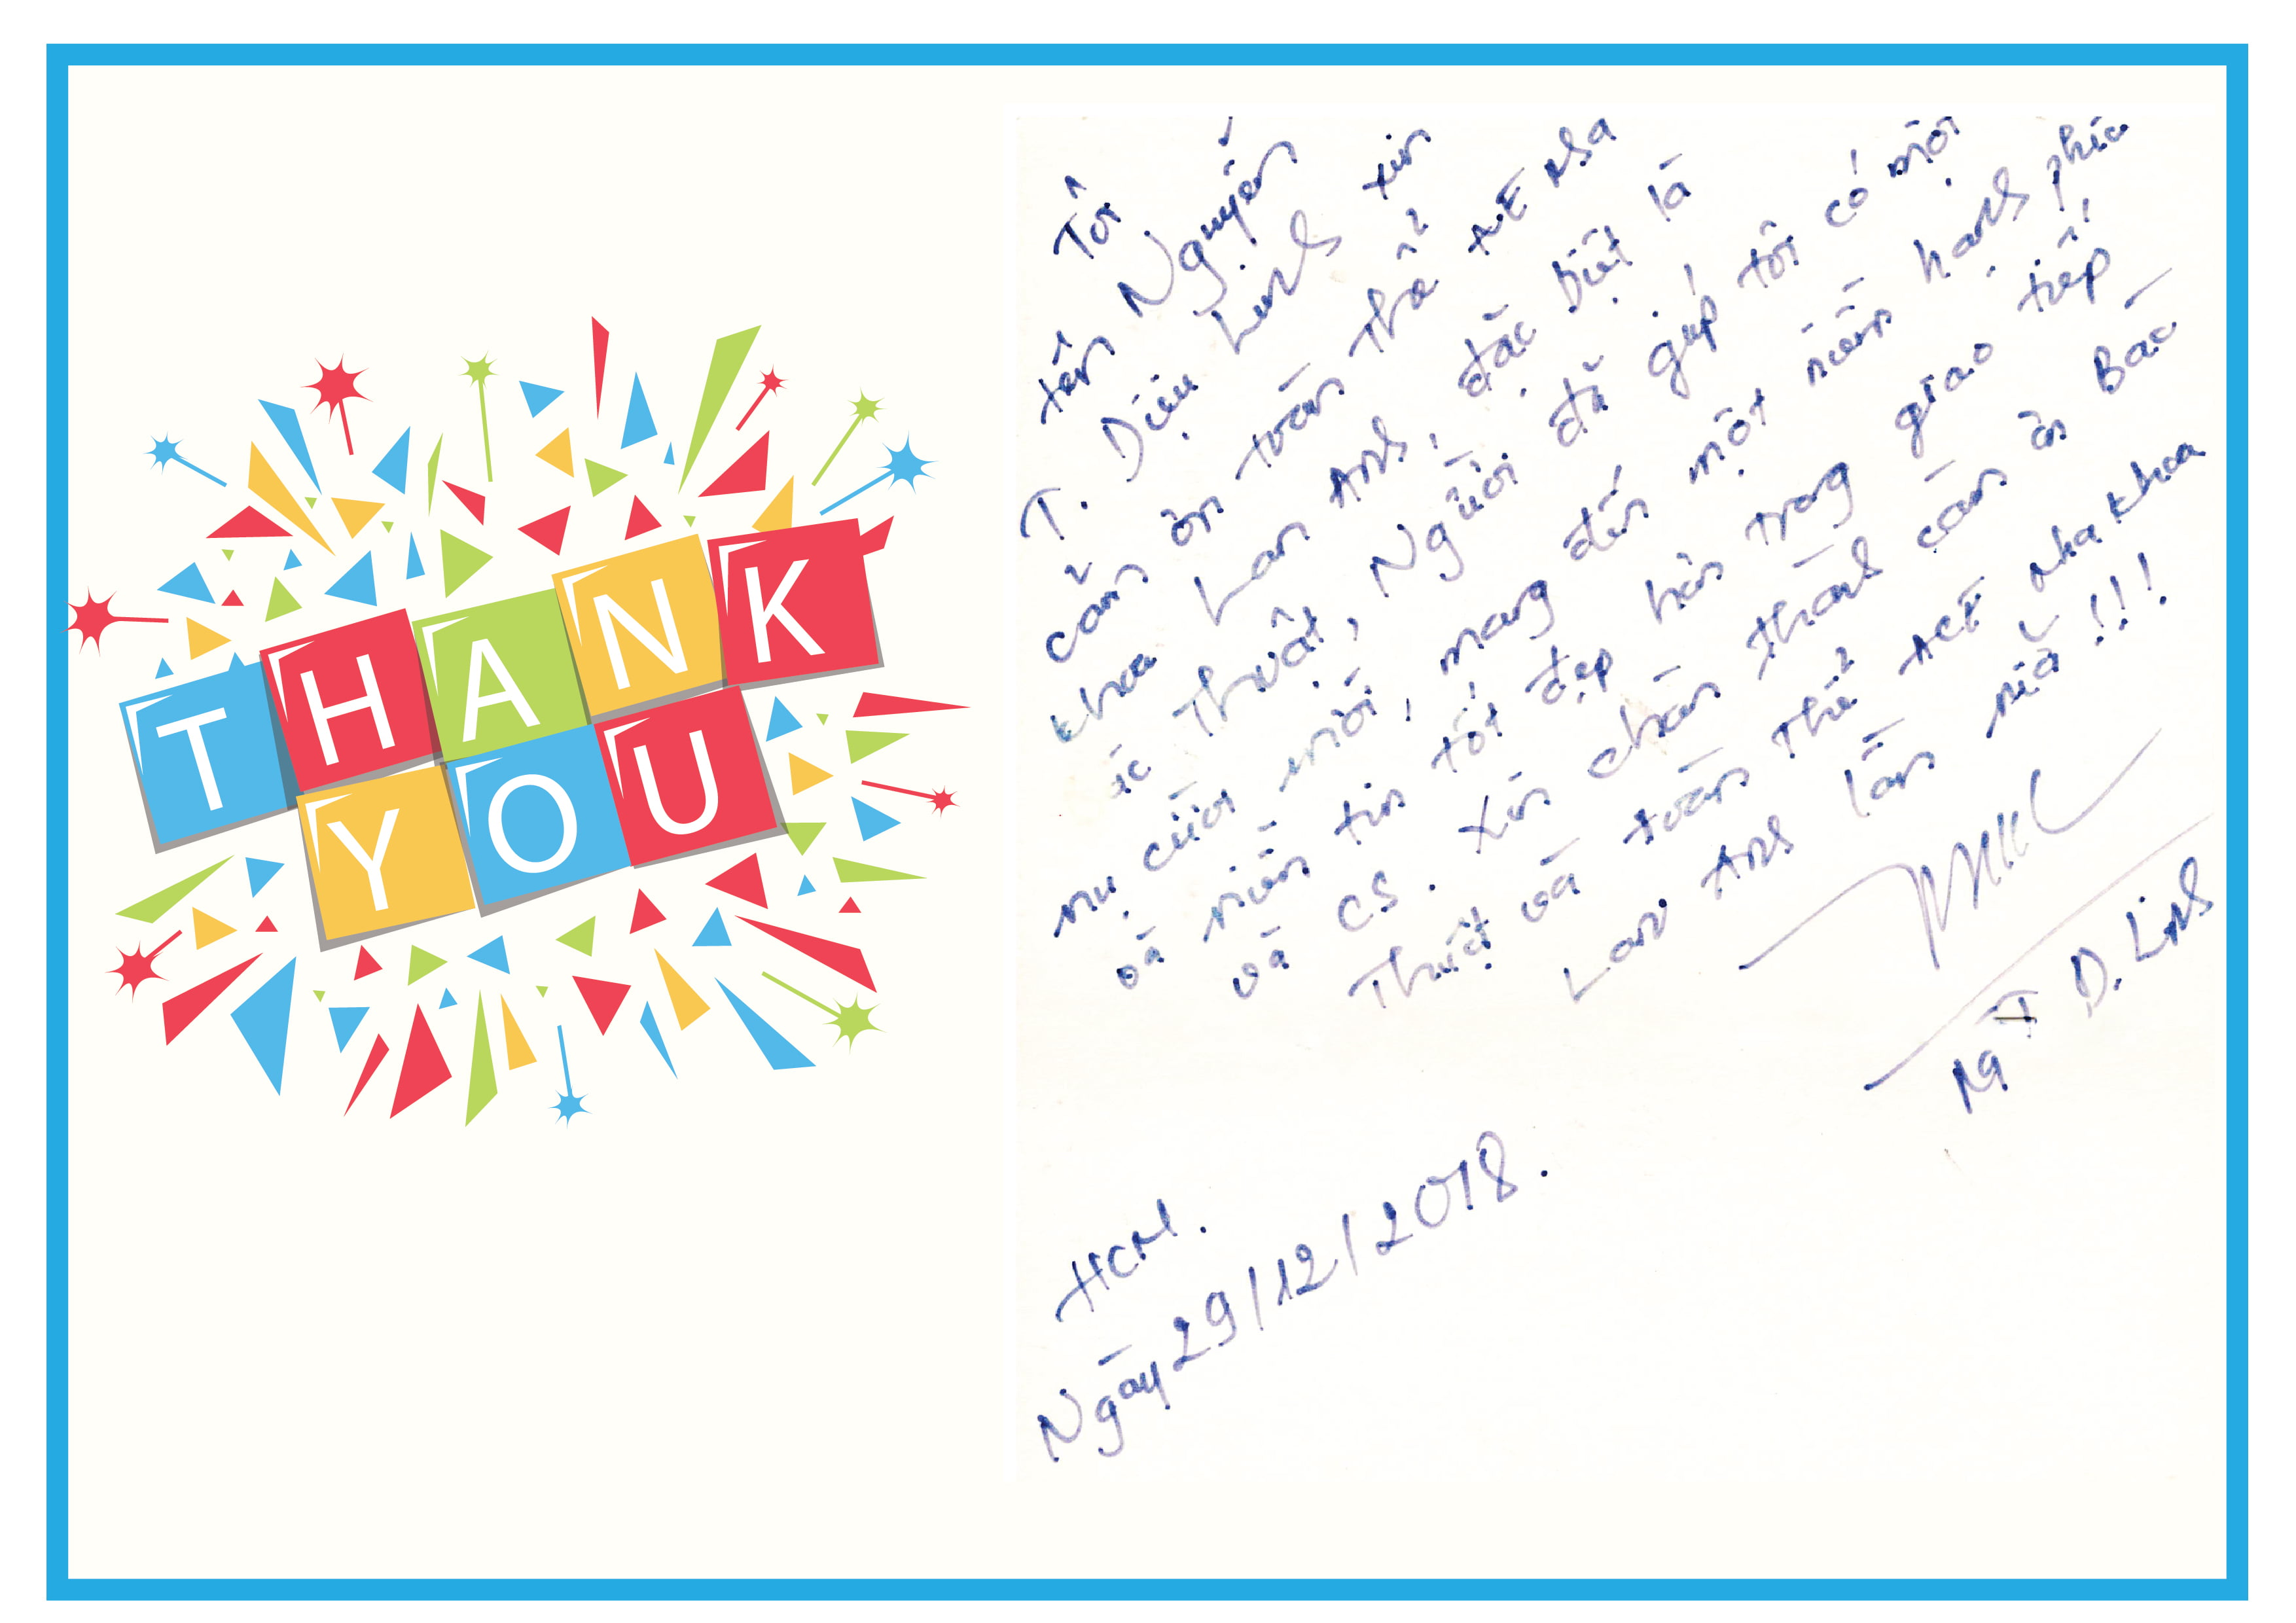 THANK
YOU
Tôi
tên Nguyễn
T. Diệu Linh xin
cảm ơn toàn thể Nha
khoa Lan Anh, đặc biệt là
Thuật, Người đã giúp tôi có một
nụ cười mới, mang đến một niềm hạnh phúc
và niềm tin tốt đẹp hơn trong giao tiếp
và CS. Xin chân thành cảm ơn Bác
Thuật và toàn thể ACE nha khoa
Lan Anh lần nữa!!!
Ng T D. Linh
HCM.
Ngày 29/12/2018.